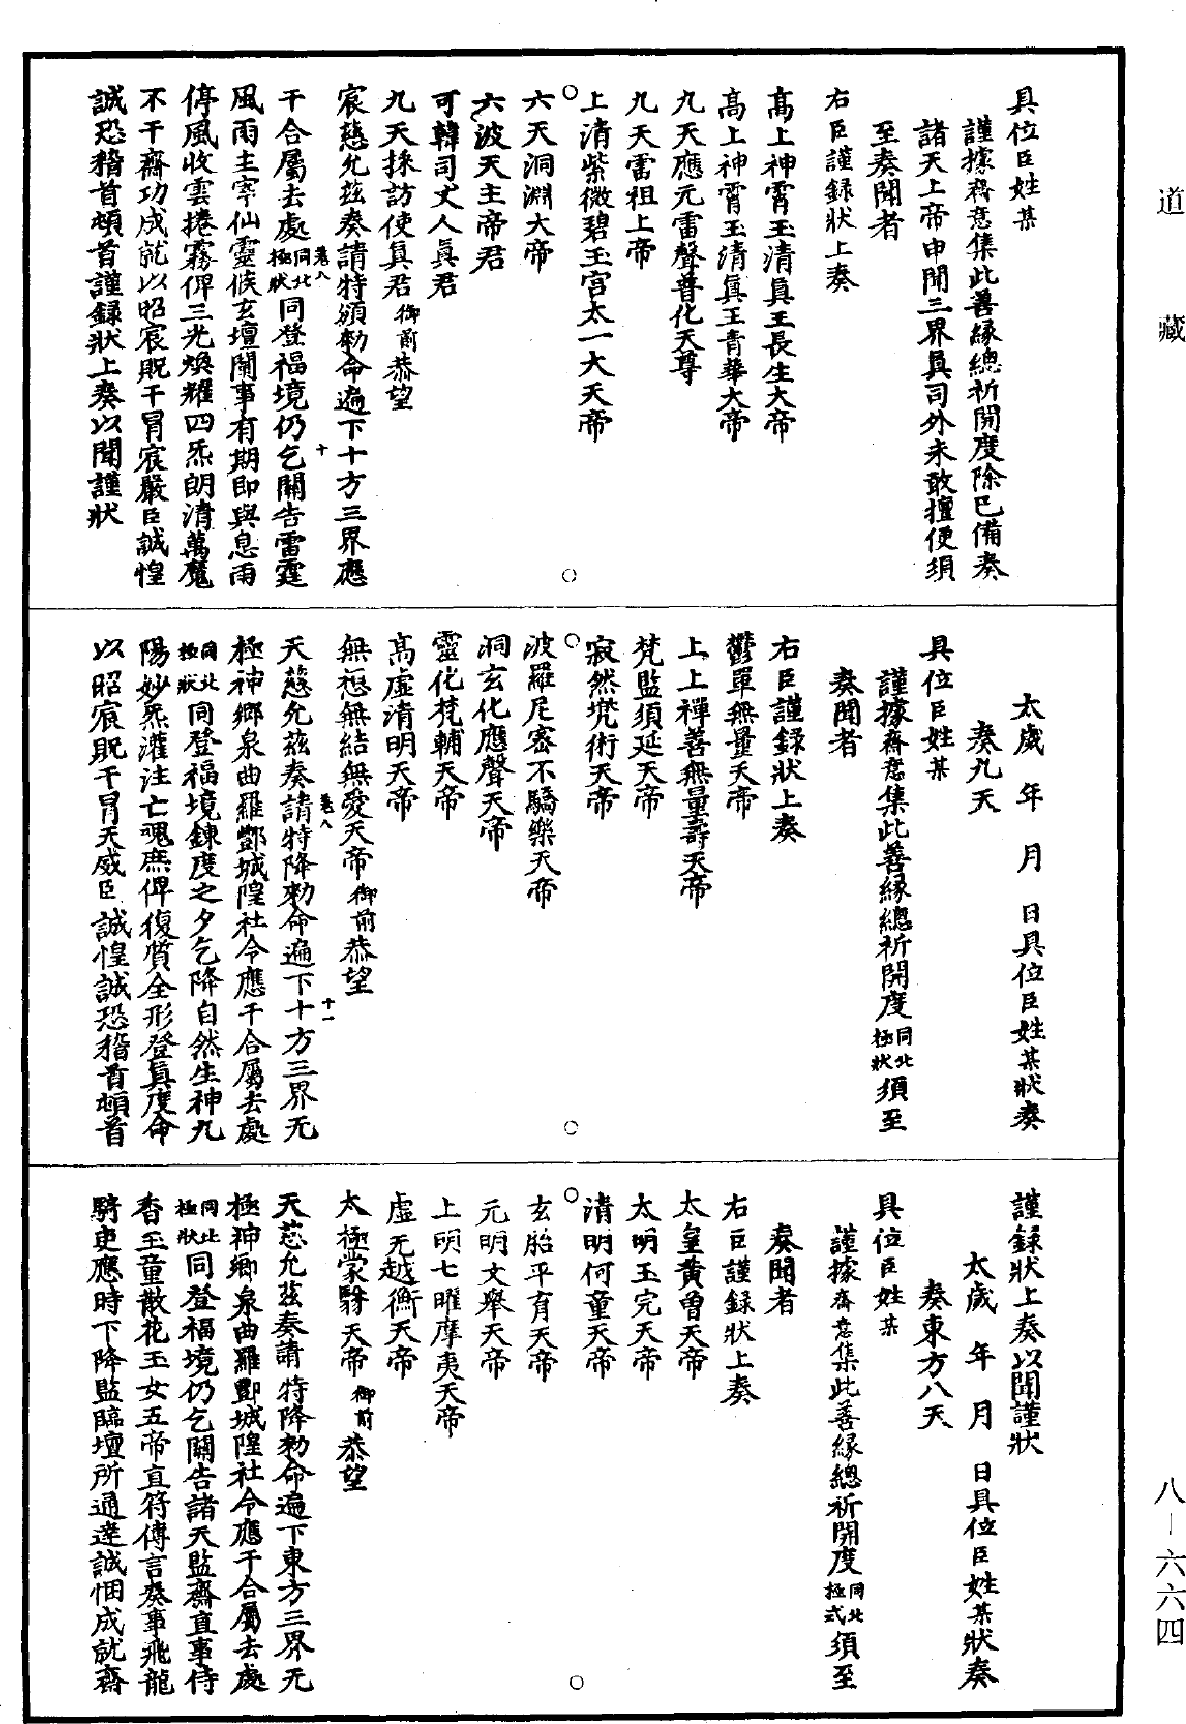 道藏
具位臣姓某
謹據齋意集此善緣總祈開度除已備奏
諸天上帝申聞三界眞司外未敢擅便須
至奏聞者
右臣謹錄狀上奏
高上神霄玉清眞王長生大帝
高上神霄玉清眞王青華大帝
九天應元雷聲普化天尊
九天雷祖上帝
上清紫微碧玉宮太一大天帝
六天洞淵大帝
六波天主帝君
可韓司丈人眞君
九天採訪使眞君御前恭望
宸慈允茲奏請特頒勑命遍下十方三界應
卷八 十
干合屬去處同北極狀同登福境仍乞關告雷霆
風雨主宰仙靈候玄壇闡事有期即與息雨
停風收雲捲霧俾三光煥耀四炁朗清萬魔
不干齋功成就以昭宸貺干冒宸嚴臣誠惶
誠恐稽首頓首謹錄狀上奏以聞謹狀
太歲 年 月 日具位臣姓某狀奏
奏九天
具位臣姓某
謹據齋意集此善緣總祈開度同北極狀須至
奏聞者
右臣謹錄狀上奏
鬱單無量天帝
上上禪善無量壽天帝
梵監須延天帝
寂然兜術天帝
波羅尼密不驕樂天帝
洞玄化應聲天帝
靈化梵輔天帝
高虛清明天帝
無想無結無愛天帝御前恭望
卷八 十一
天慈允茲奏請特降勑命遍下十方三界无
極神鄉泉曲羅酆城隍社令應干合屬去處
同北極狀同登福境鍊度之夕乞降自然生神九
陽妙炁灌注亡魂庶俾復質全形登眞度命
以昭宸貺干冒天威臣誠惶誠恐稽首頓首
謹錄狀上奏以聞謹狀
太歲 年 月 日具位臣姓某狀奏
奏東方八天
具位臣姓某
謹據齋意集此善緣總祈開度同北極式須至
奏聞者
右臣謹錄狀上奏
太皇黃曾天帝
太明玉完天帝
清明何童天帝
玄胎平育天帝
元明文舉天帝
上明七曜摩夷天帝
虛无越衡天帝
太極蒙翳天帝御前恭望
天慈允茲奏請特降勑命遍下東方三界无
極神鄉泉曲羅酆城隍社令應干合屬去處
同北極狀同登福境仍乞關告諸天監齋直事侍
香玉童散花玉女五帝直符傳言奏事飛龍
騎吏應時下降監臨壇所通達誠悃成就齋
八—六六四